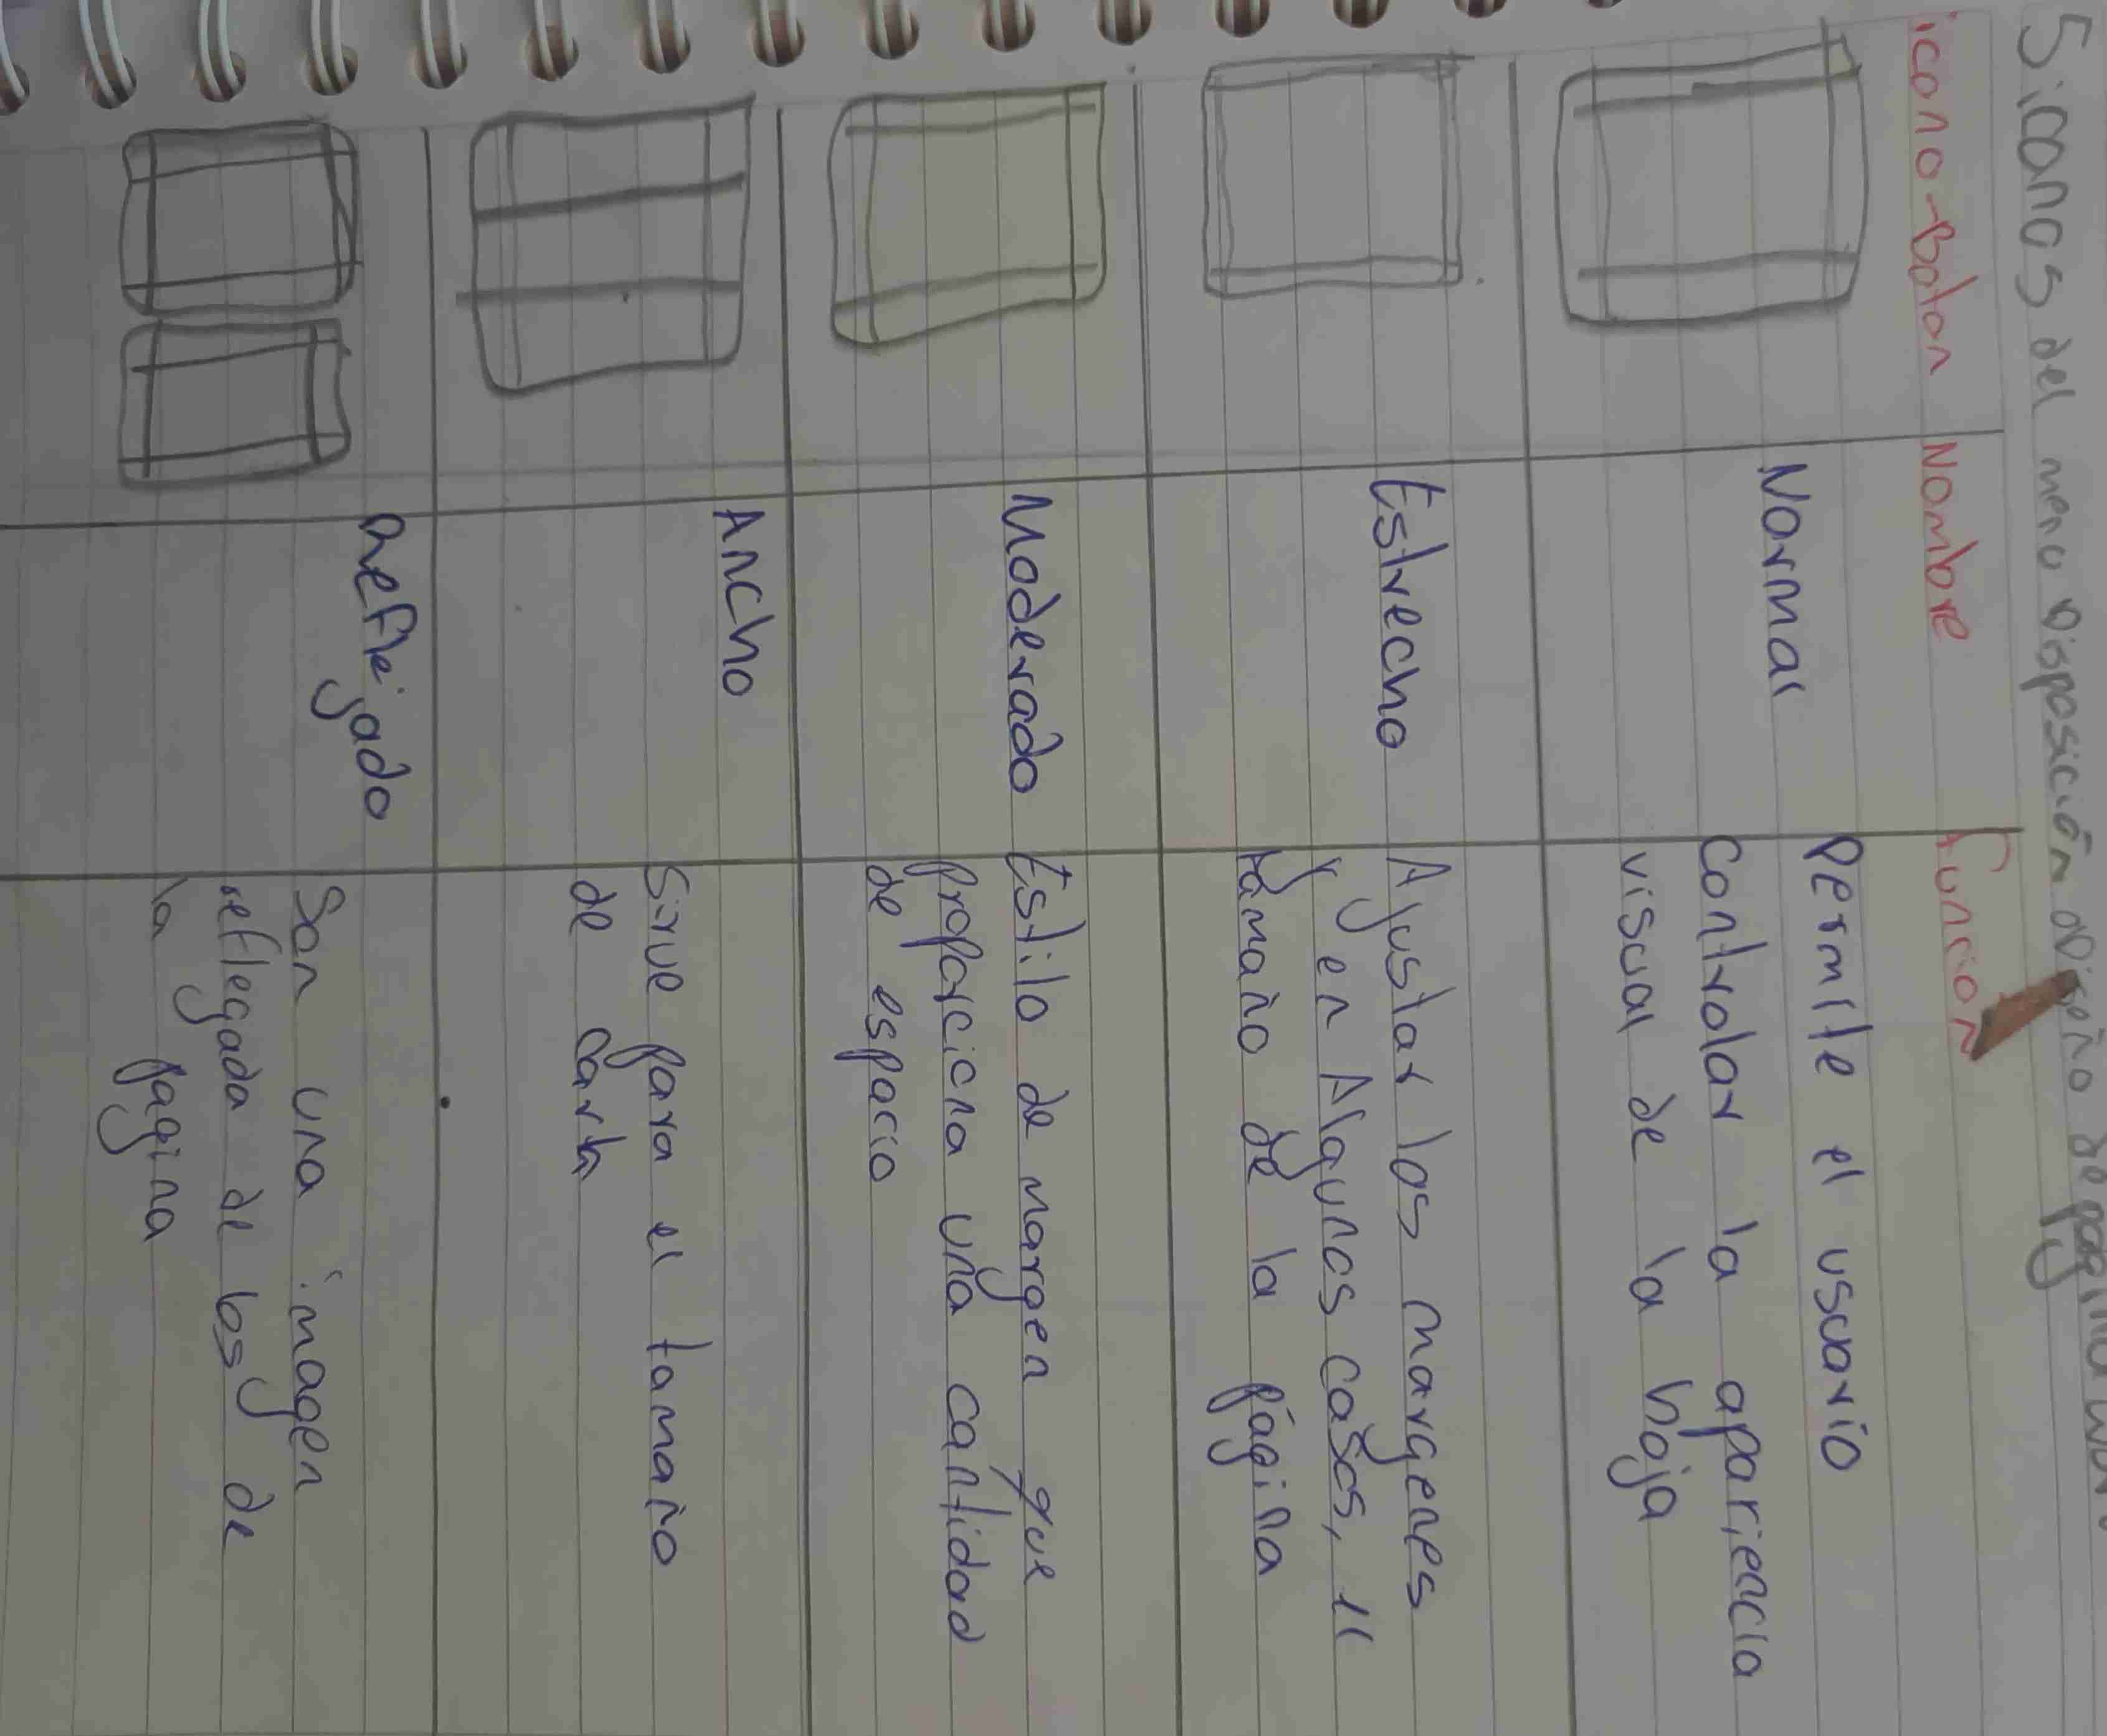 5 iconos del menu Disposición o Diseño de pagina
icono-Boton Nombre Función
Normal
Permite el usuario
Controlar la apariencia
visual de la hoja
Estrecho
Ajustar los margenes
y en Algunos casos, el
tamaño de la página
Moderado
Estilo de margen que
proporciona una cantidad
de espacio
Ancho
Sirve para el tamaño
de carta
Reflejado
Son una imagen
reflegada de los de
la pagina